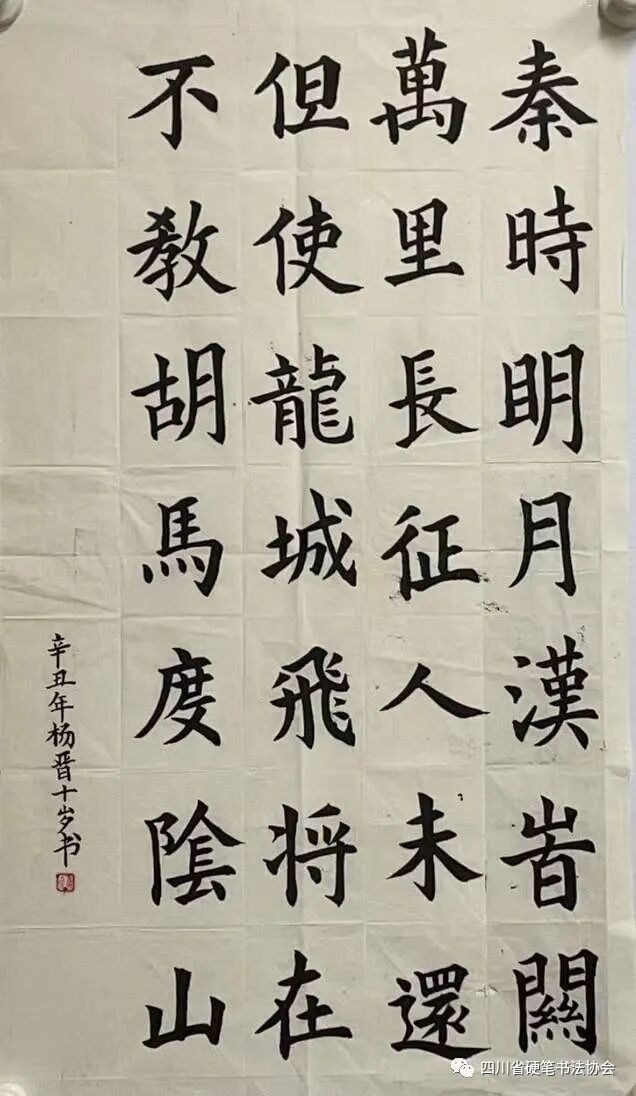 秦時明月漢旹關
萬里長征人未還
但使龍城飛将在
不教胡馬度陰山
辛丑年杨晋十岁书
四川省硬笔书法协会